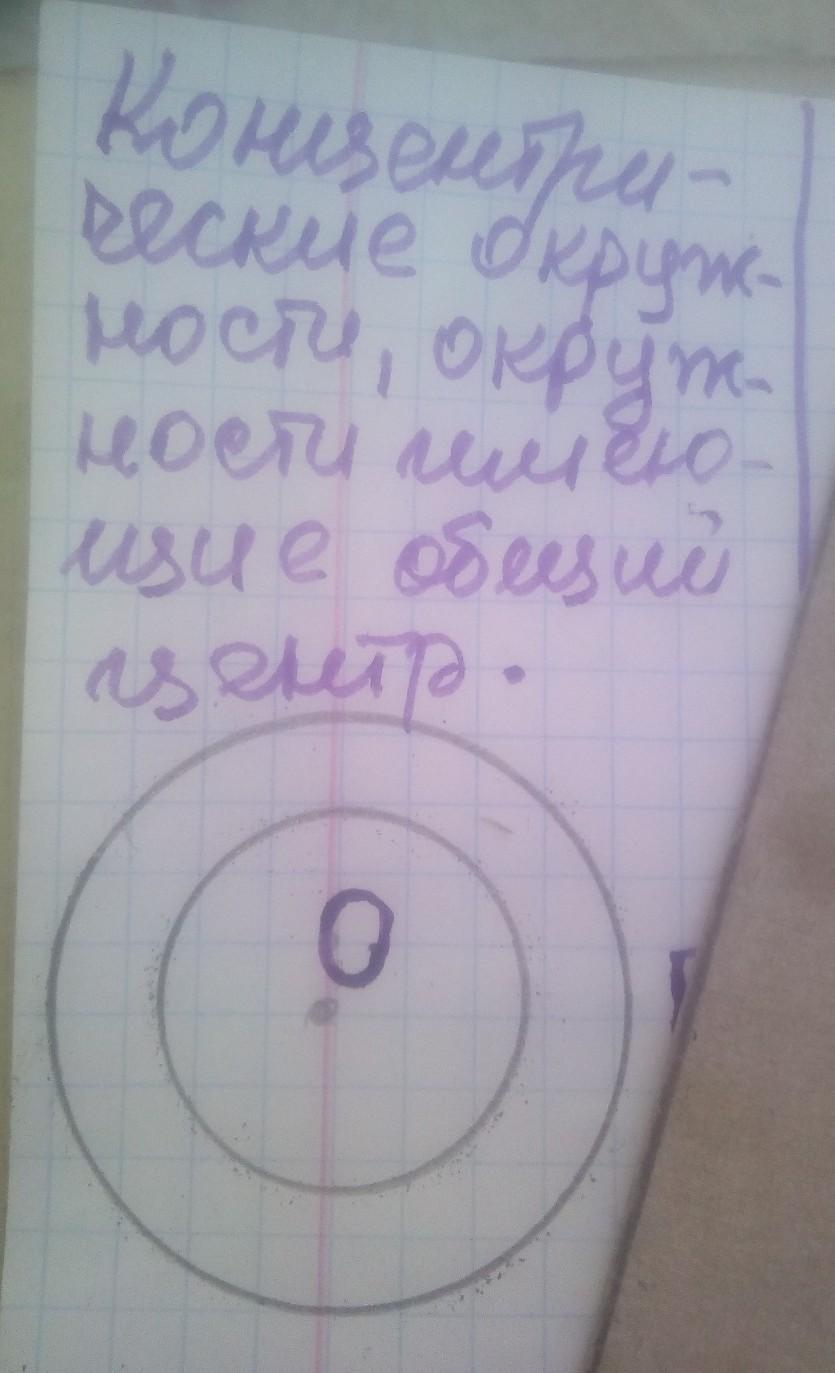 Концентри-
ческие окруж-
ности, окруж-
ности имею-
щие общий
центр.
О